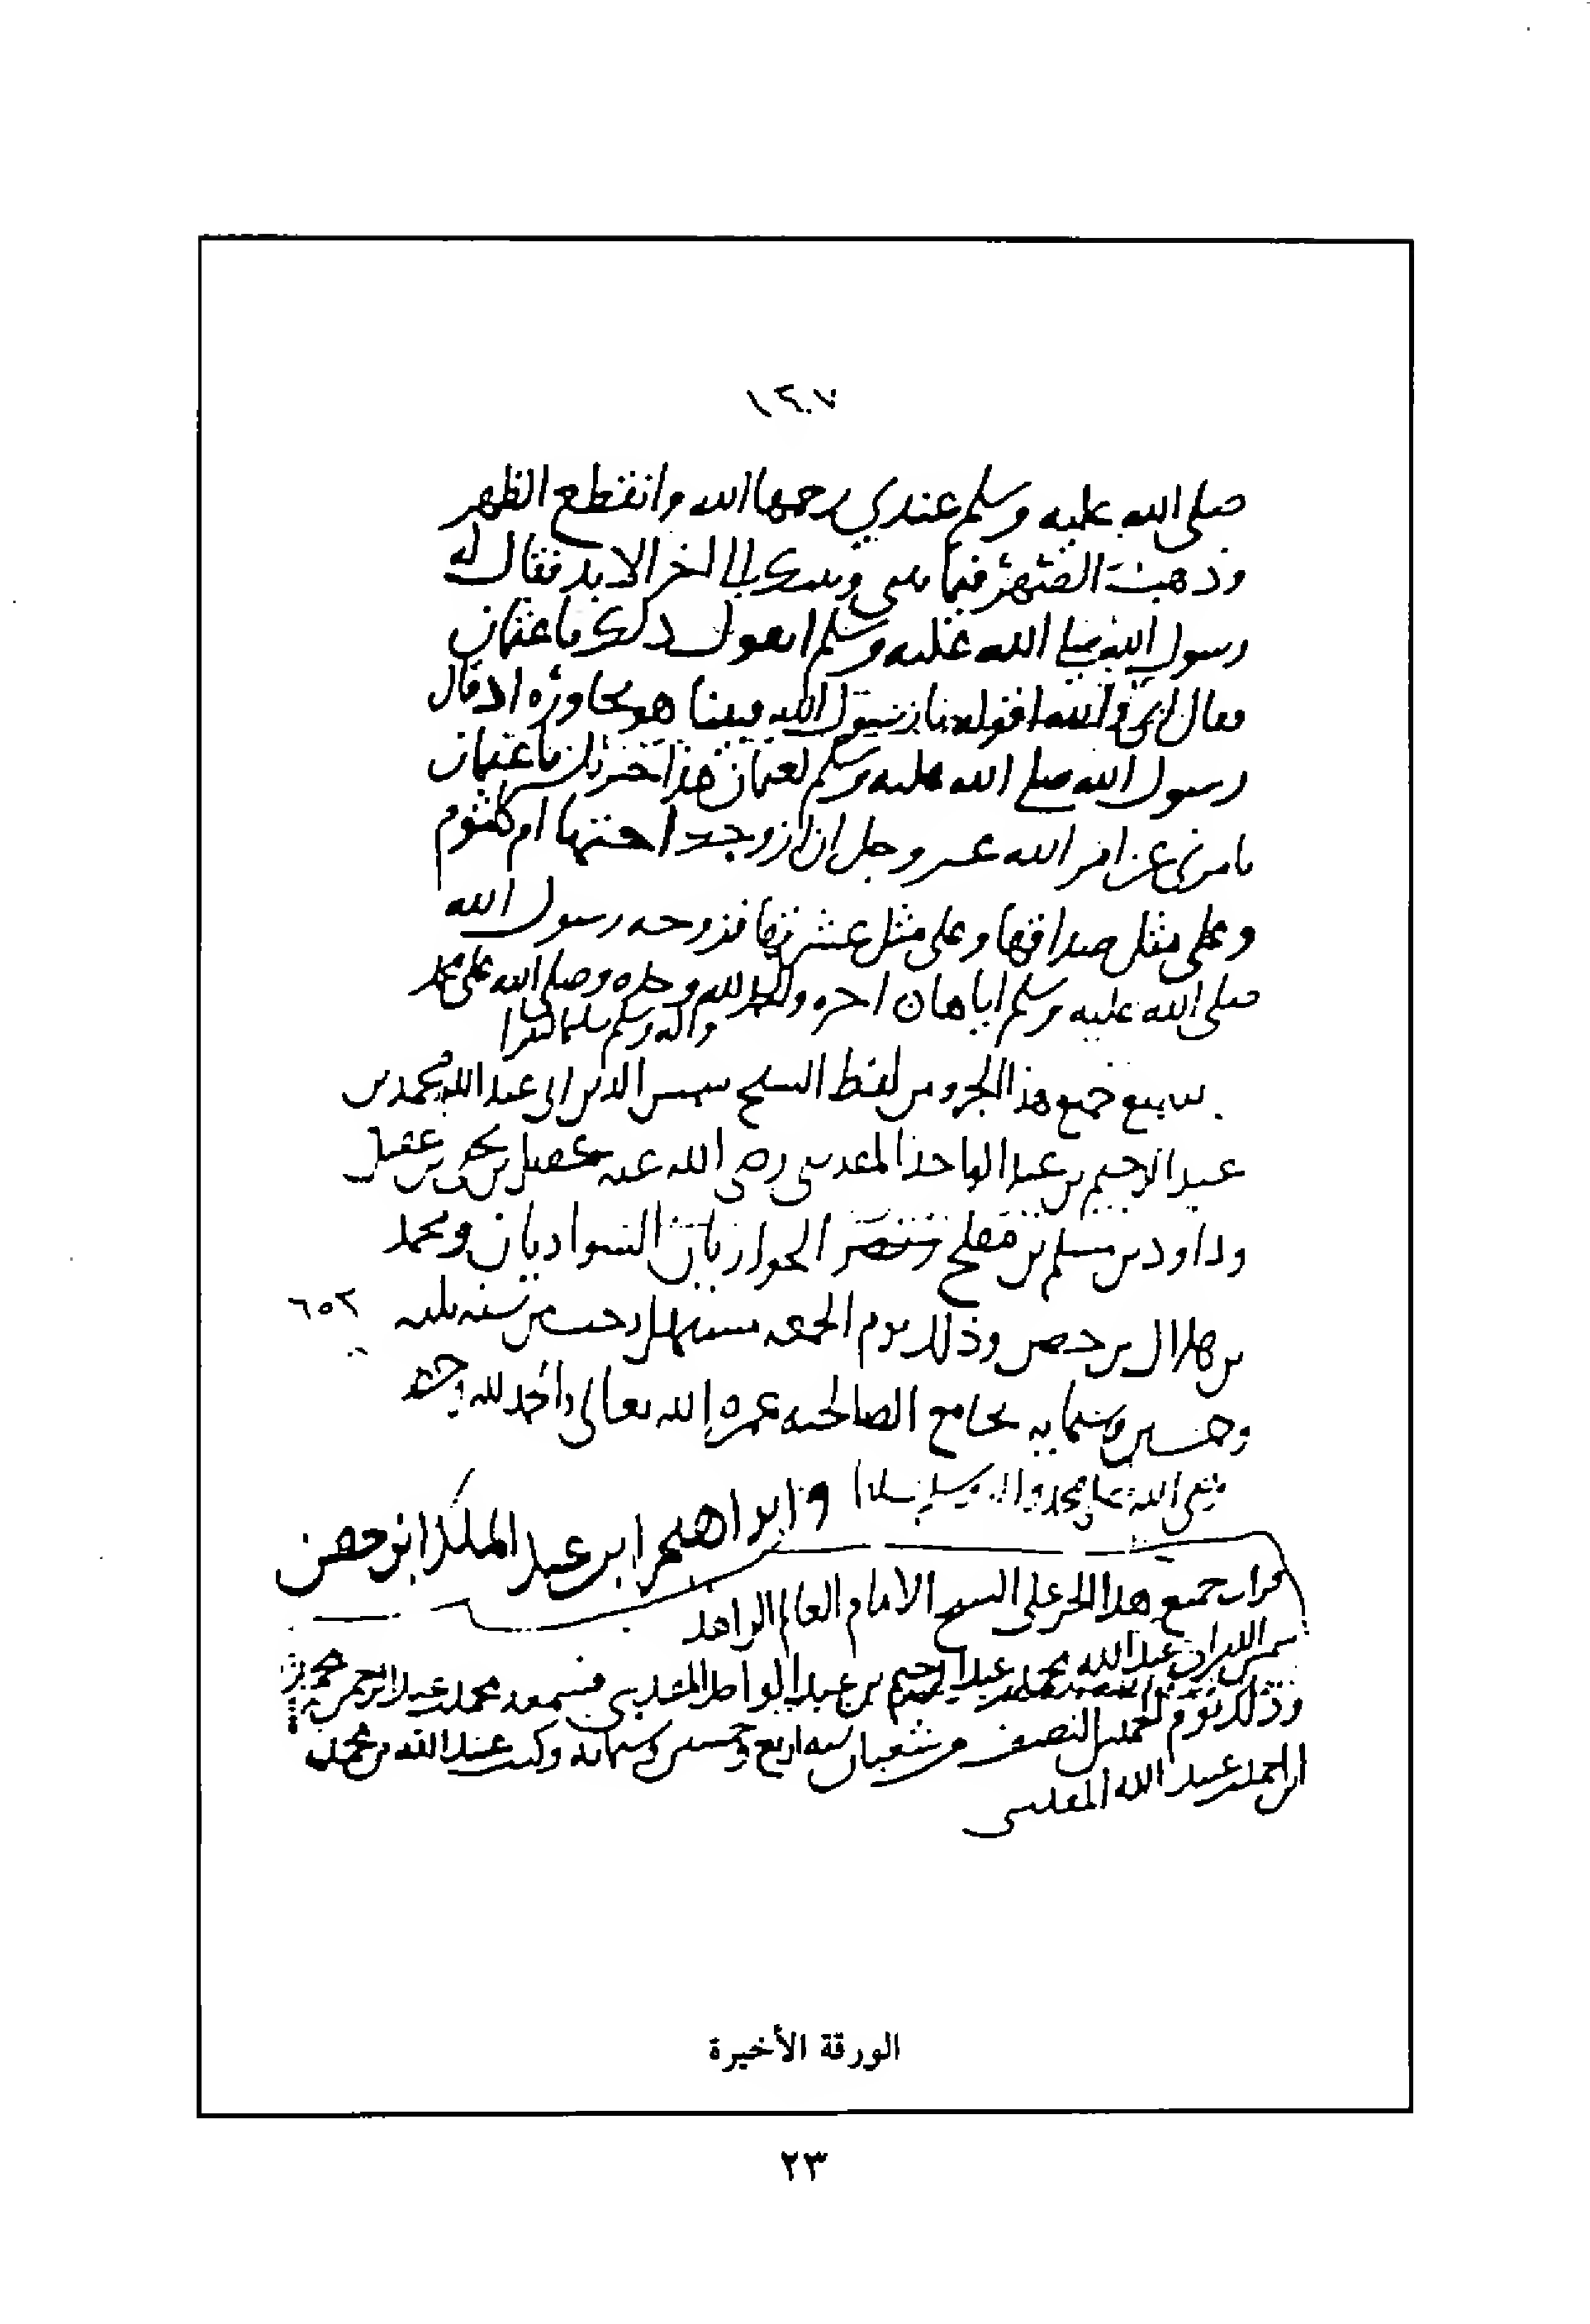 ١٢٠٧
صلى الله عليه وسلم عندي رحمها الله وانقطع الظهر
وذهبت الصهر فيما بيني وبينك إلى اخر الابد فقال له
رسول الله صلى الله عليه وسلم اتقول ذلك يا عثمان
فقال اي والله اقوله يا رسول الله فبينا هو يحاوره اذ قال
رسول الله صلى الله عليه وسلم لعثمان هذا جبريل يا عثمان
يامرني عن امر الله عز وجل ان ازوجك اختها ام كلثوم
وعلى مثل صداقها وعلى مثل عشرتها فزوجه رسول الله
صلى الله عليه وسلم اياها اخره والحمد لله وحده وصلى الله على محمد
واله وسلم تسليما كثيرا
سمع جميع هذا الجزو من لفظ الشيخ شمس الدين ابي عبد الله محمد بن
عبد الرحيم بن عبد الواحد المقدسي رضي الله عنه عقيل بن عقيل
وداود بن مسلم بن مفلح الحواريان السواديان ومحمد
بن هلال بن وذلك يوم الجمعة مستهل رجب من سنه
٦٥٢
وخمسين وستمايه بجامع الصالحيه عمره الله تعالى والحمد لله وحده
وصلى الله على محمد واله وسلم تسليما
وابراهيم ابن عبد الملك ابن
قرات جميع هذا الجز على الشيخ الامام العالم الزاهد
شمس الدين ابي عبد الله محمد بن عبد الرحيم بن عبد الواحد المقدسي فسمعه محمد بن عبد الرحمن بن
وذلك يوم النصف من شعبان سنه اربع وخمسين وستمايه وكتب عبد الله بن محمد
ابن احمد بن عبد الله المقدسي
الورقة الأخيرة
٢٣